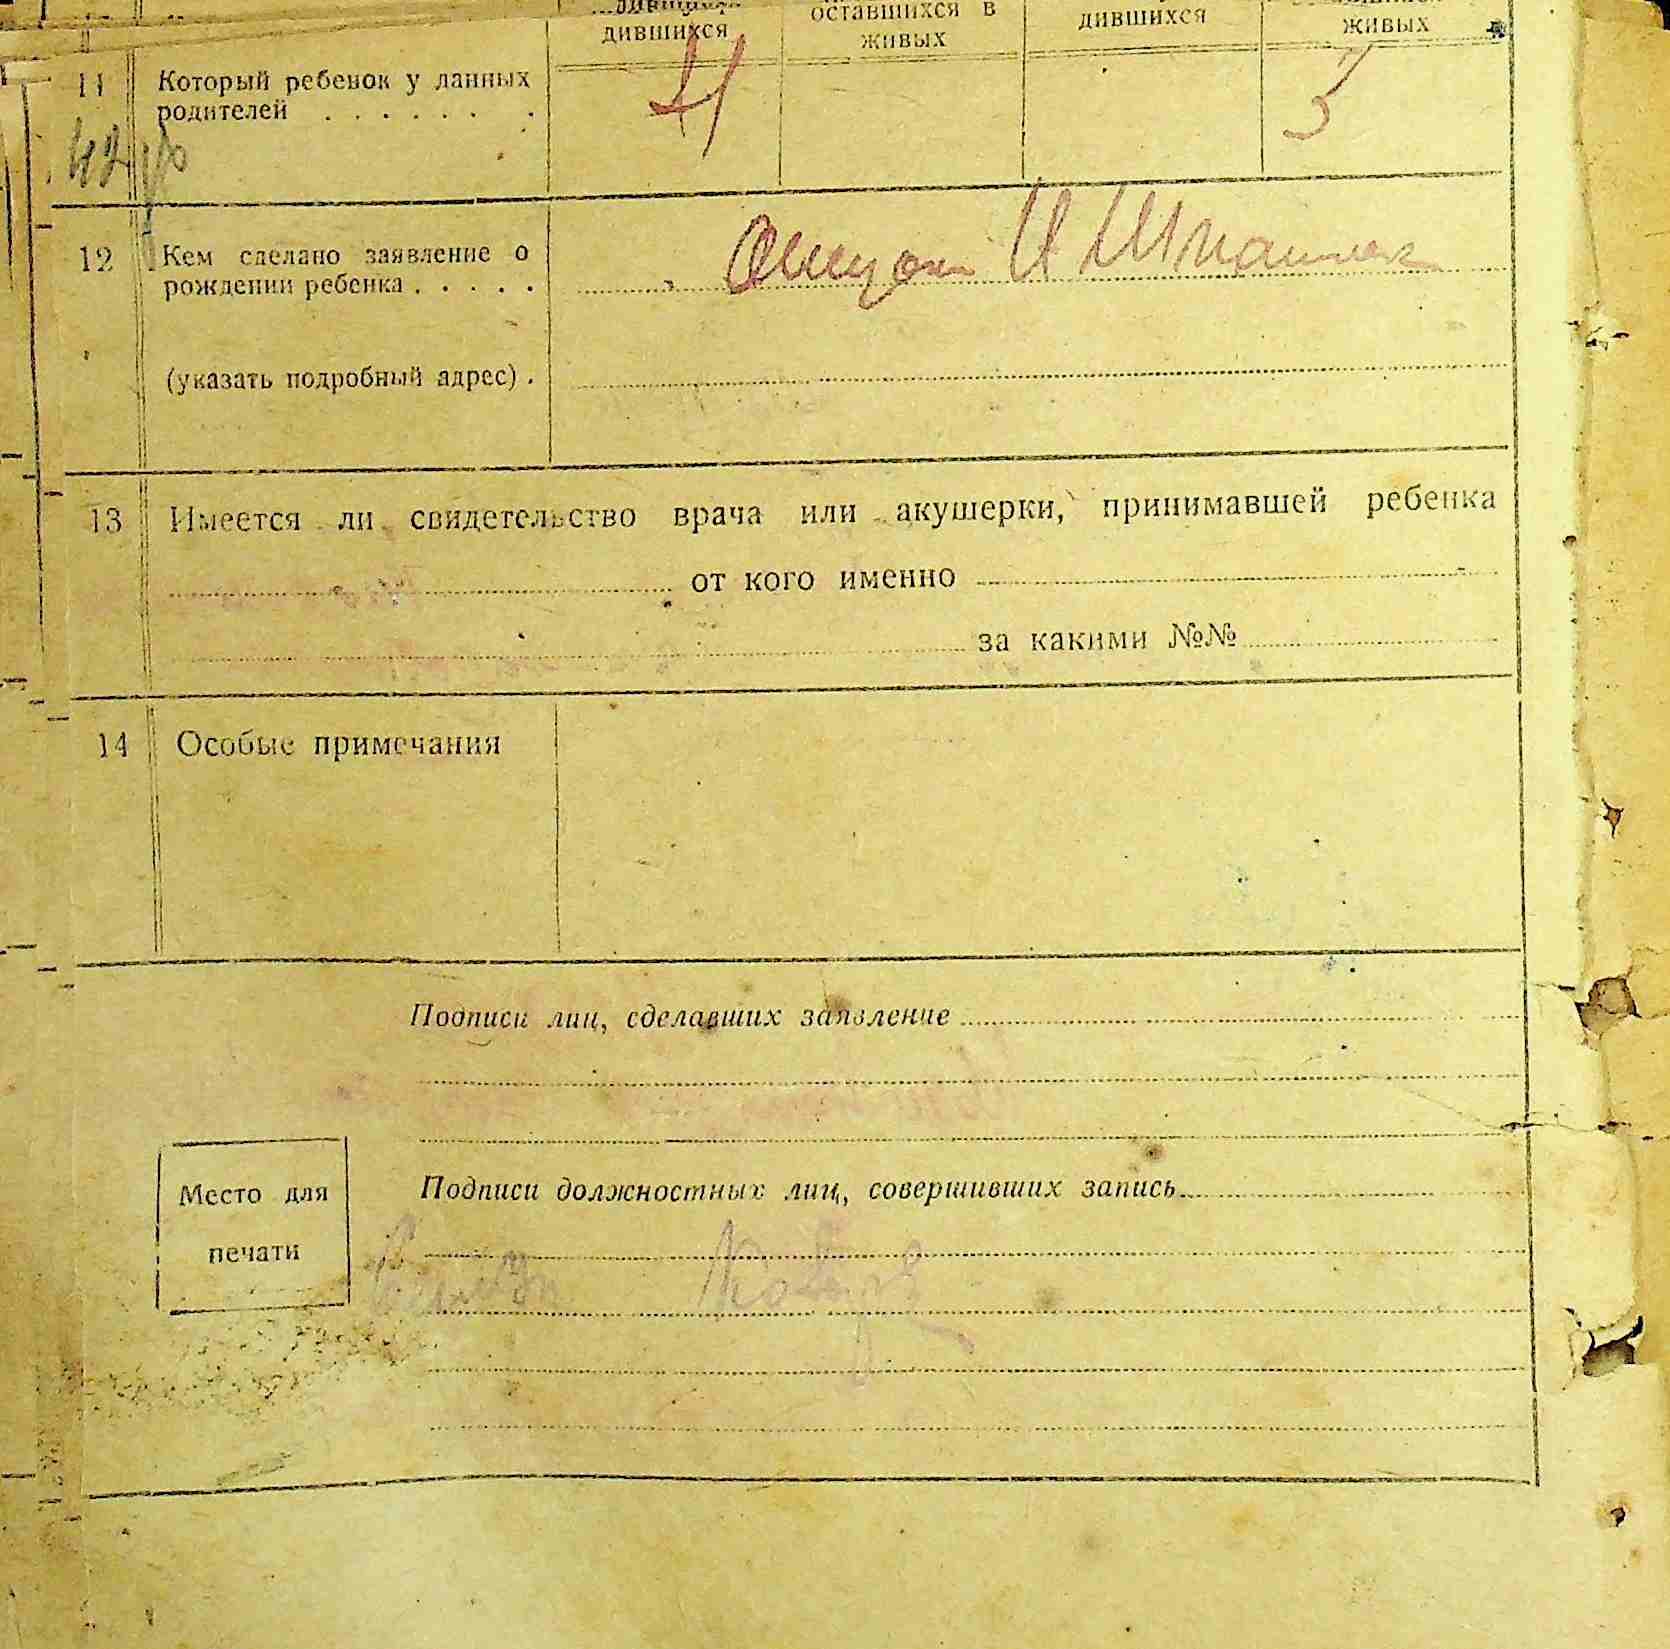 дившихся
оставшихся в
живых
дившихся
живых
11 Который ребенок у данных
родителей . . . . . . .
4
3
12 Кем сделано заявление о
рождении ребенка . . . . .
(указать подробный адрес) .
13 Имеется ли свидетельство врача или акушерки, принимавшей ребенка
от кого именно
за какими №№
14 Особые примечания
Подписи лиц, сделавших заявление
Место для
печати
Подписи должностных лиц, совершивших запись